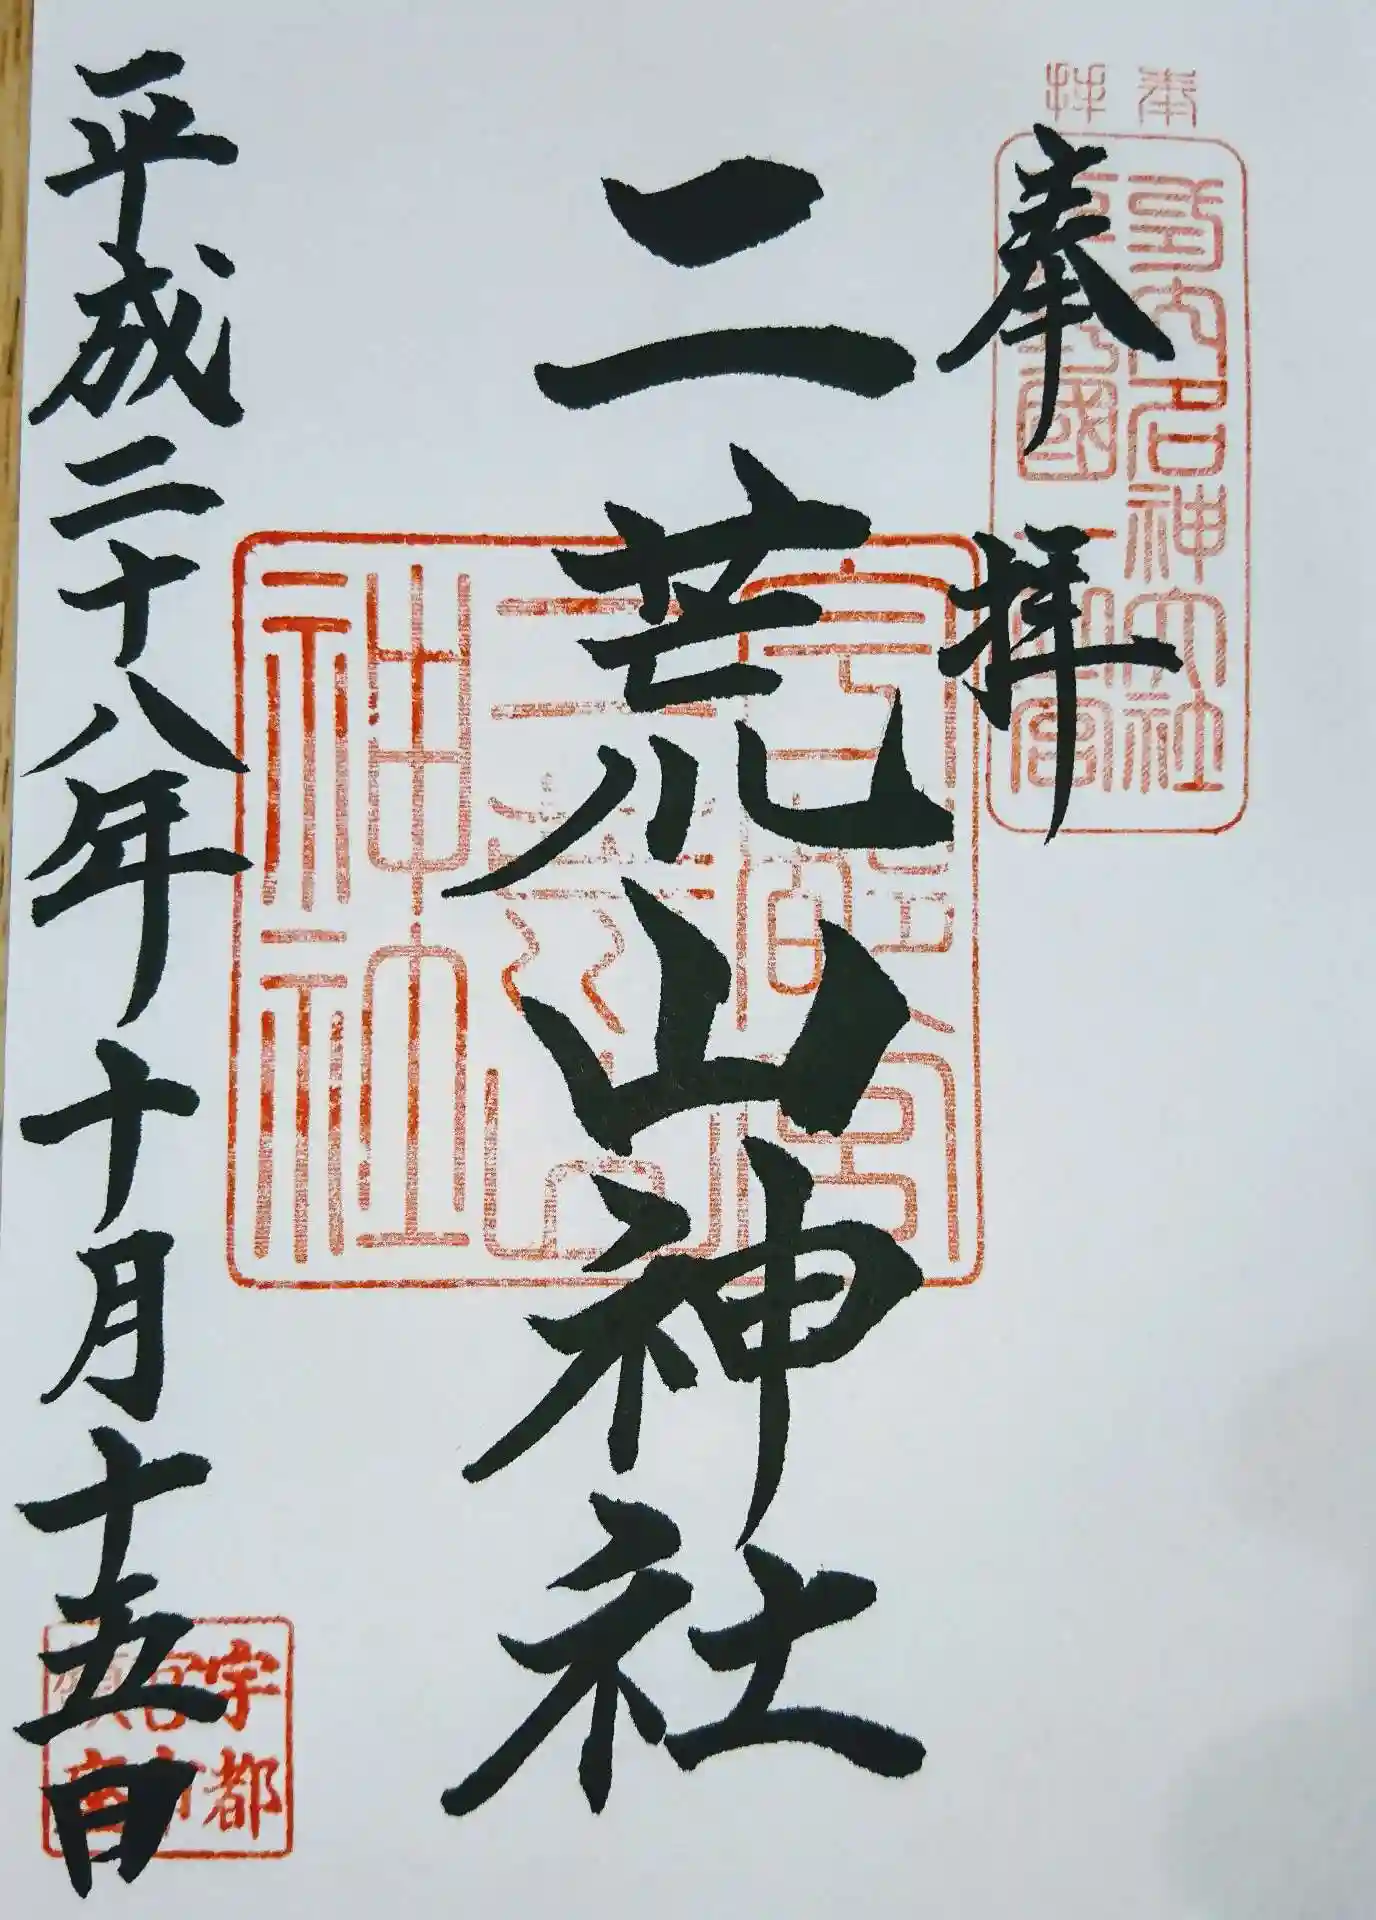 奉拝
奉拝
式内名神大社
下野國一之宮
二荒山神社
宇都宮
二荒山
神社
平成二十八年十月十五日
宇都
宮市